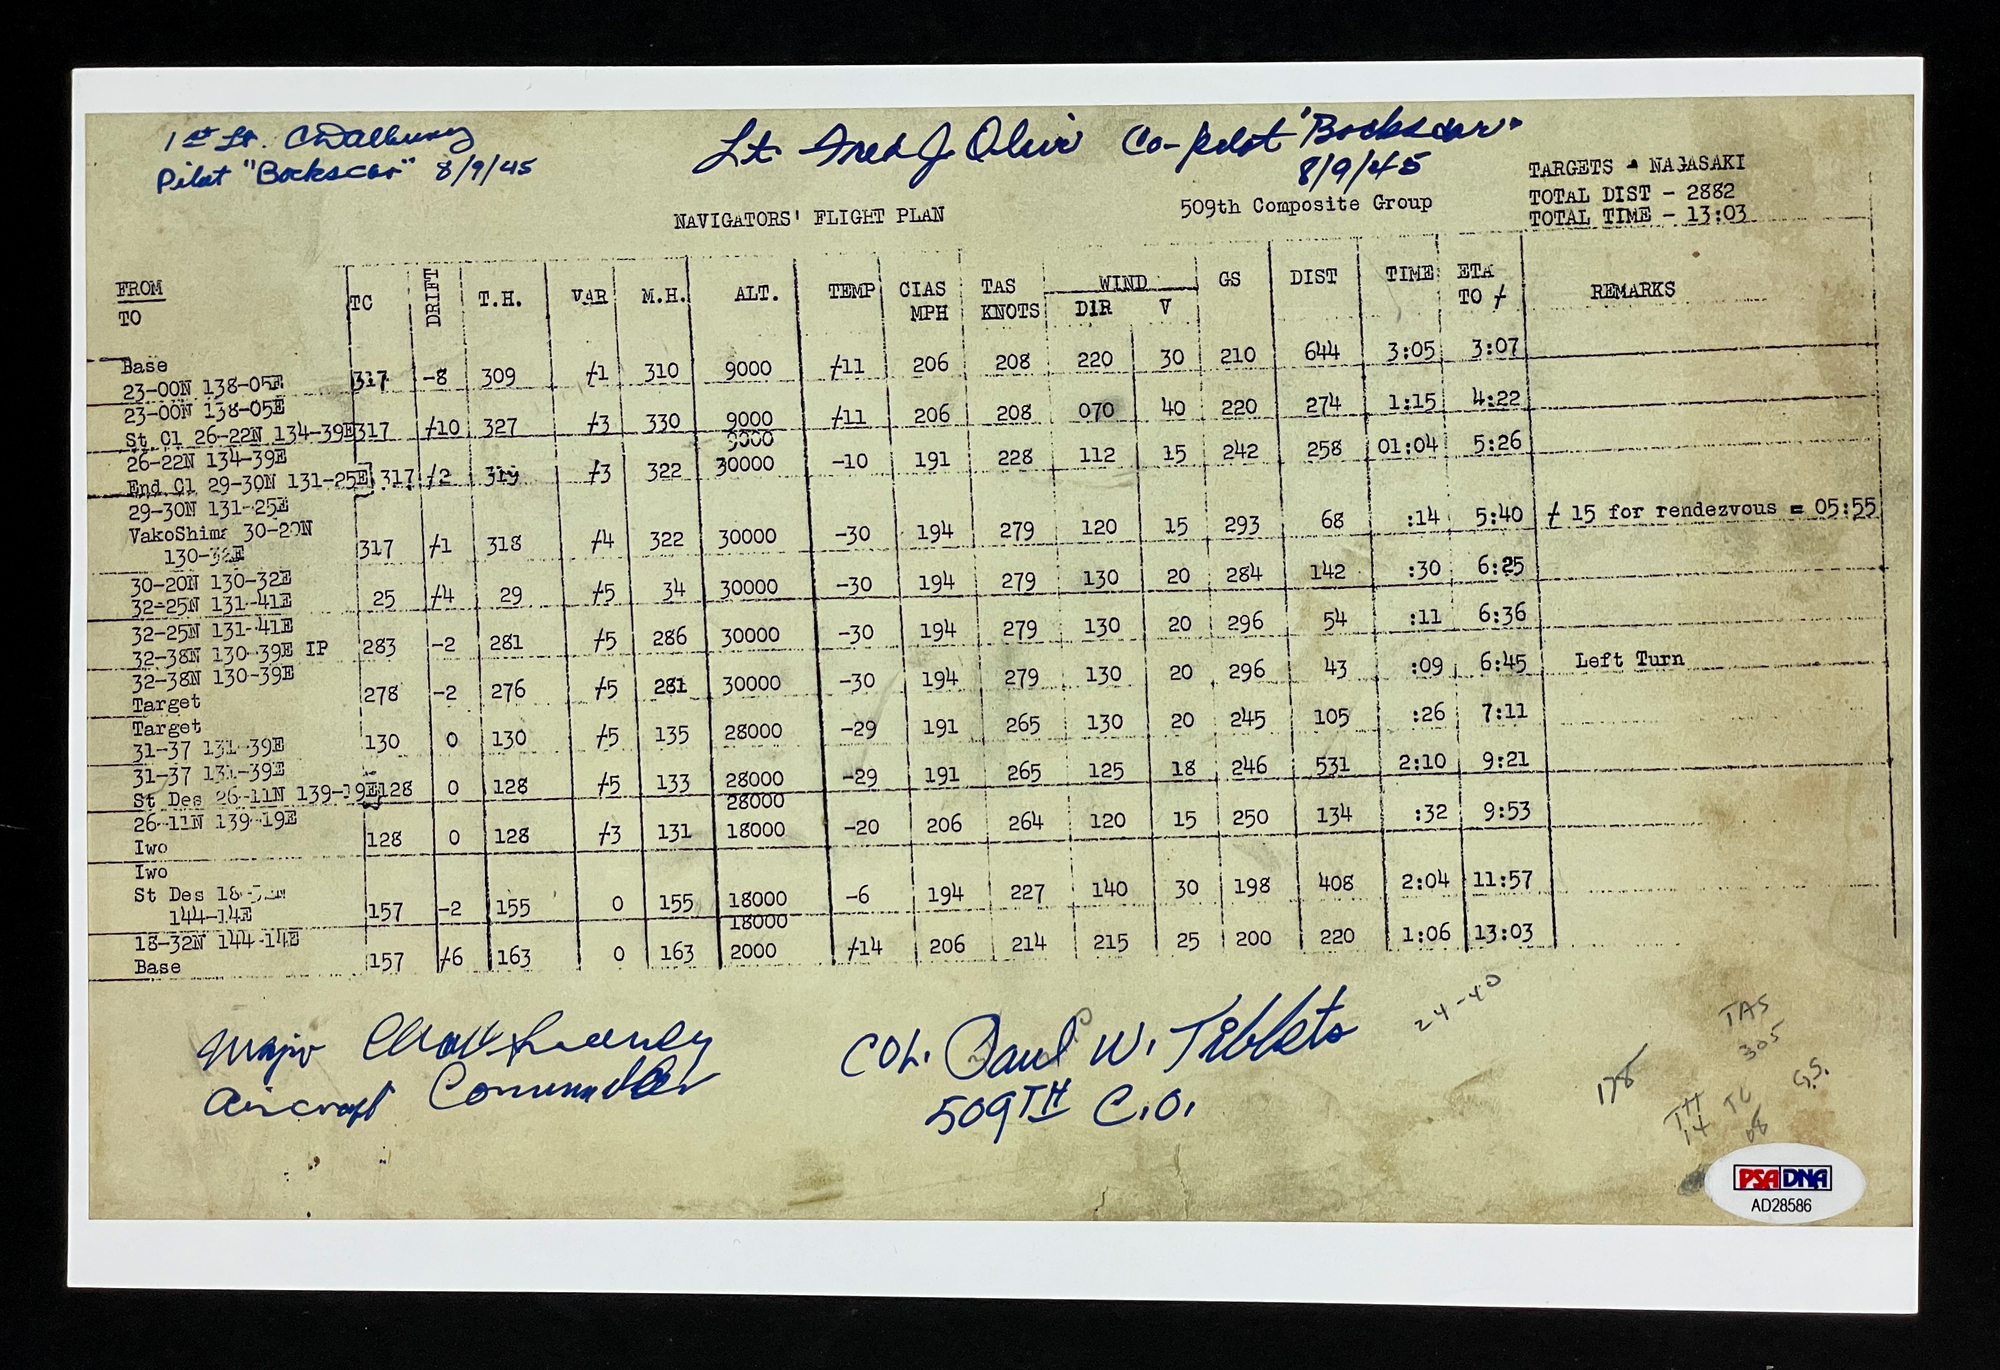 1st Lt. CDAlbury
Pilot "Bockscar" 8/9/45
Lt. Fred J. Olivi Co-Pilot "Bockscar"
8/9/45
TARGETS - NAGASAKI
TOTAL DIST - 2882
TOTAL TIME - 13:03
NAVIGATORS' FLIGHT PLAN
509th Composite Group
FROM
TO
TC DRIFT T.H. VAR M.H. ALT. TEMP CIAS MPH TAS KNOTS WIND DIR V GS DIST TIME ETA TO / REMARKS
Base
23-00N 138-05E 317 -8 309 /1 310 9000 /11 206 208 220 30 210 644 3:05 3:07
23-00N 138-05E
St Cl 26-22N 134-39E 317 /10 327 /3 330 9000 /11 206 208 070 40 220 274 1:15 4:22
26-22N 134-39E 9000
End Cl 29-30N 131-25E 317 /2 319 /3 322 30000 -10 191 228 112 15 242 258 01:04 5:26
29-30N 131-25E
VakoShima 30-20N
130-32E 317 /1 318 /4 322 30000 -30 194 279 120 15 293 68 :14 5:40 / 15 for rendezvous = 05:55
30-20N 130-32E
32-25N 131-41E 25 /4 29 /5 34 30000 -30 194 279 130 20 284 142 :30 6:25
32-25N 131-41E
32-38N 130-39E IP 283 -2 281 /5 286 30000 -30 194 279 130 20 296 54 :11 6:36
32-38N 130-39E
Target 278 -2 276 /5 281 30000 -30 194 279 130 20 296 43 :09 6:45 Left Turn
Target
31-37 131-39E 130 0 130 /5 135 28000 -29 191 265 130 20 245 105 :26 7:11
31-37 131-39E
St Des 26-11N 139-19E 128 0 128 /5 133 28000 -29 191 265 125 18 246 531 2:10 9:21
26-11N 139-19E 28000
Iwo 128 0 128 /3 131 18000 -20 206 264 120 15 250 134 :32 9:53
Iwo
St Des
144-14E 157 -2 155 0 155 18000 -6 194 227 140 30 198 408 2:04 11:57
18-32N 144-14E 18000
Base 157 /6 163 0 163 2000 /14 206 214 215 25 200 220 1:06 13:03
24-40
Major Chas W Sweeney
Aircraft Commander
COL. Paul W. Tibbets
509TH C.O.
TAS
305
178
G.S.
TH TC
14 08
PSA DNA
AD28586